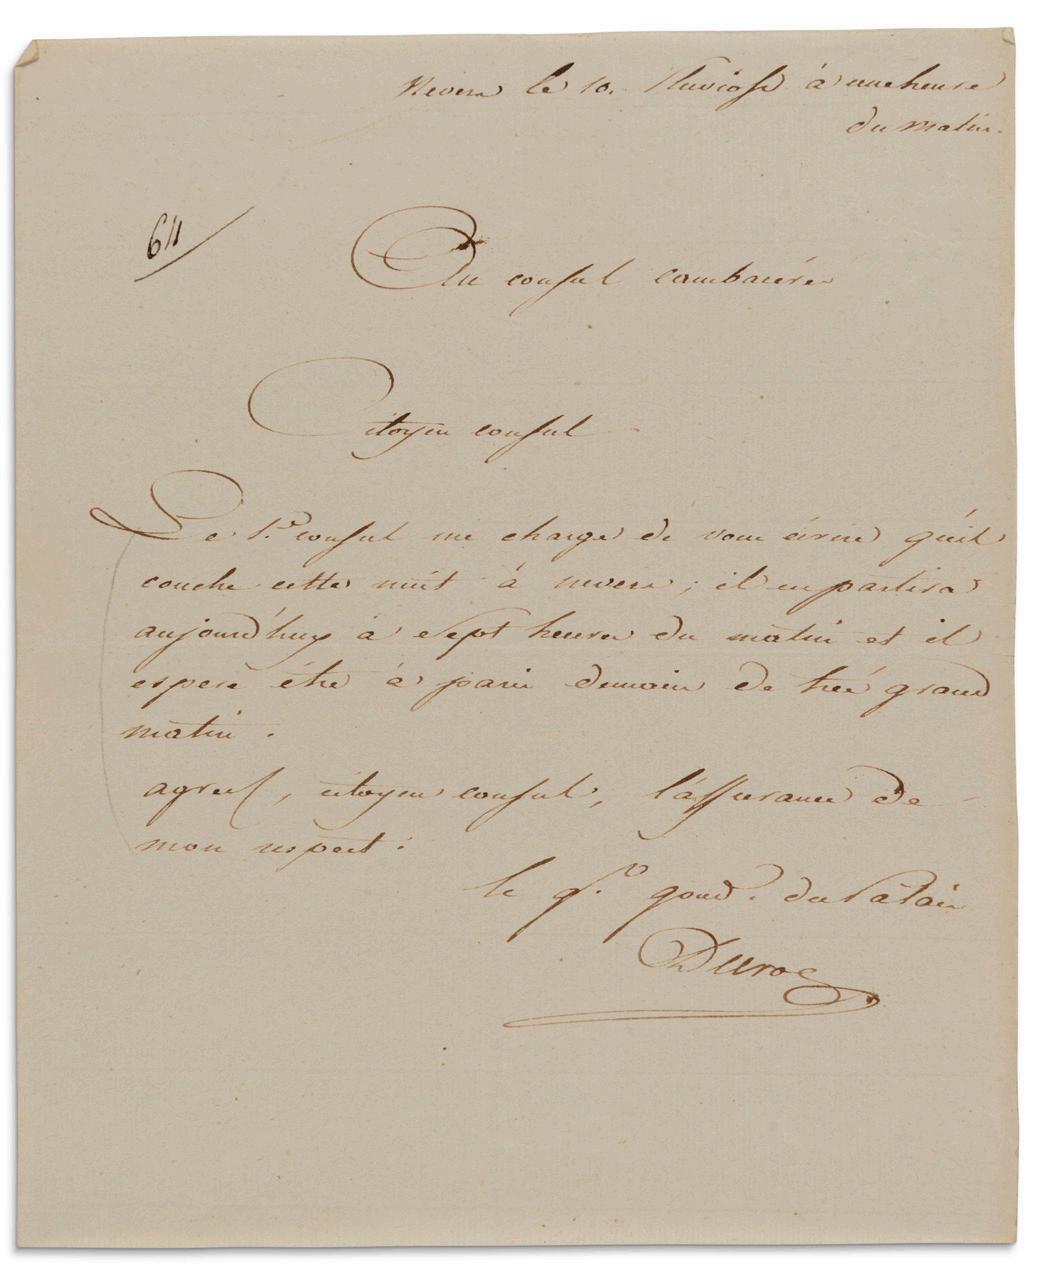 Nevers le 10. Pluviose à une heure
du matin.
64
Au consul cambacérès
Citoyen consul
Le 1.er consul me charge de vous écrire qu'il
couche cette nuit à nevers ; il en partira
aujourd'huy à sept heures du matin et il
espere être à paris demain de très grand
matin .
agreés , citoyen consul , l'assurance de
mon respect .
le g.al gouv.r du Palais
Duroc